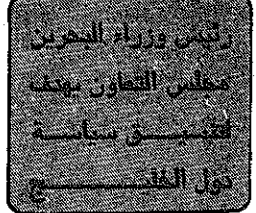 رئيس وزراء البحرين
مجلس التعاون يهدف
لتنسيق سياسة
دول الخليج